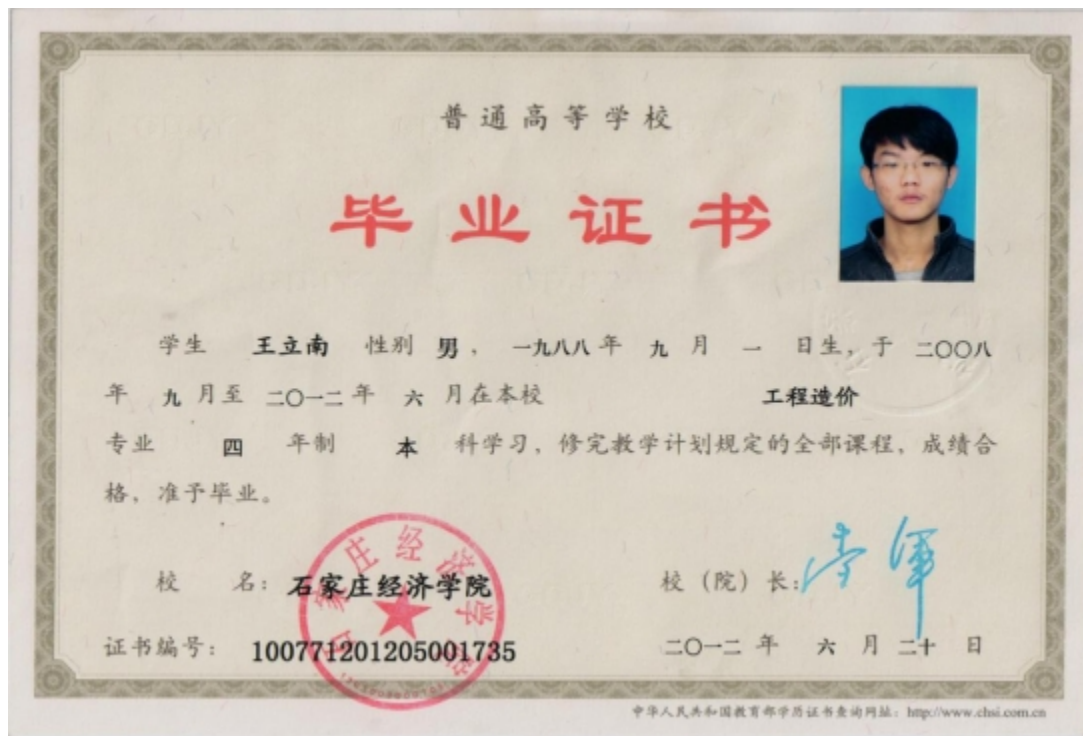 普通高等学校
毕业证书
学生 王立南 性别 男, 一九八八年 九 月 一 日生, 于 二〇〇八
年 九 月至 二〇一二 年 六 月在本校 工程造价
专业 四 年制 本 科学习, 修完教学计划规定的全部课程, 成绩合
格, 准予毕业。
石家庄经济学院
校 名: 石家庄经济学院 校 (院) 长:
证书编号: 100771201205001735 二〇一二 年 六 月 二十 日
中华人民共和国教育部学历证书查询网址: http://www.chsi.com.cn